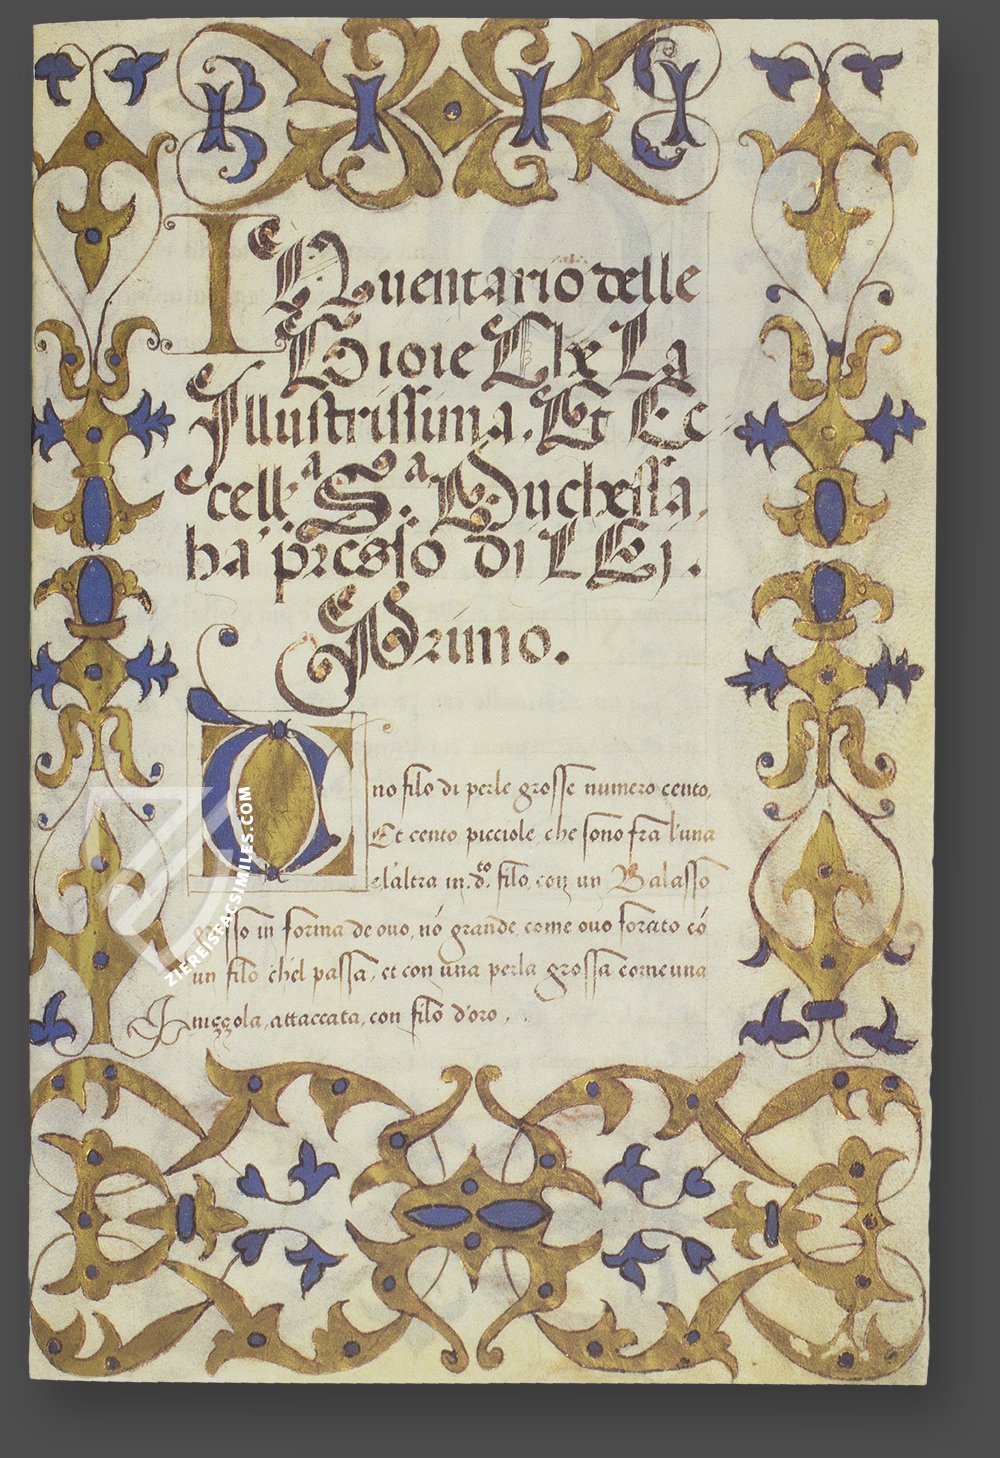 INventario delle
Gioie Che La
Illustrissima. Et Ec
cell.ᵃ S.ᵃ Duchessa.
ha' presso di LEi.
Primo.
Uno filo di perle grosse numero cento,
Et cento picciole, che sono fra l'una
e l'altra in d.ᵗᵒ filo, con un Balasso
grosso in forma de ouo, nó grande come ouo forato có
un filo ch'el passa, et con una perla grossa come una
nizzola, attaccata, con filo d'oro.
ZIEREISFACSIMILES.COM